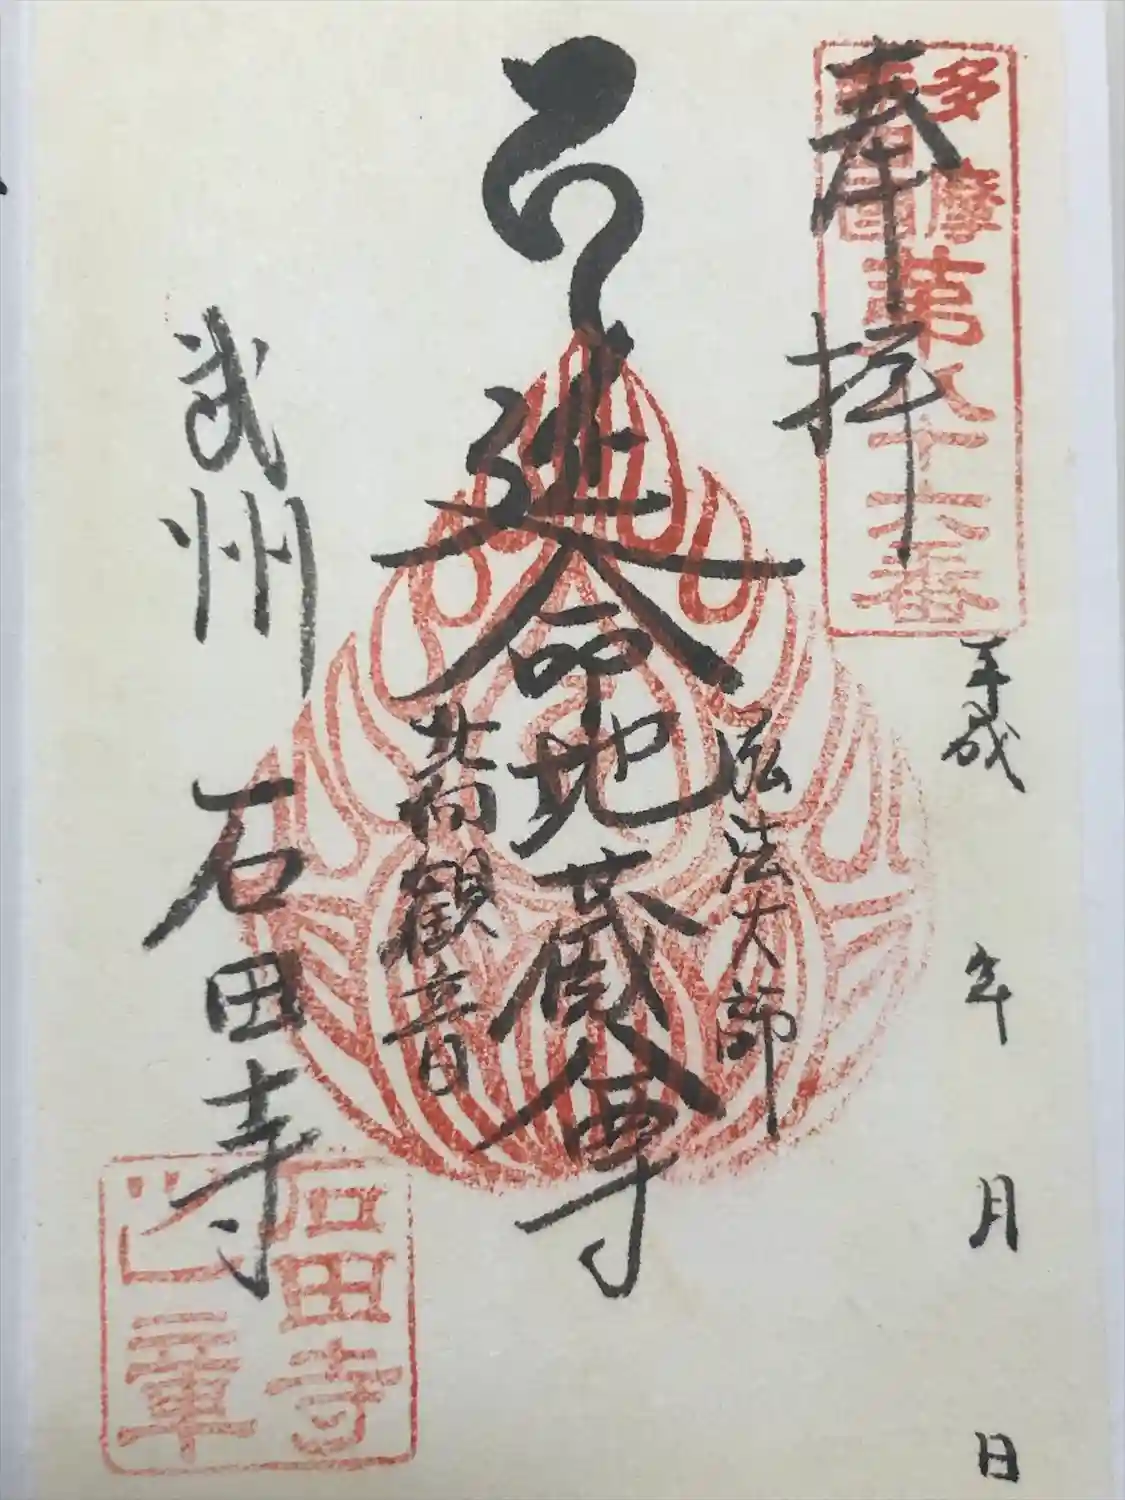 奉拝
多摩
第八十六番
平成 年 月 日
弘法大師
延命地蔵尊
北向観音
武州 石田寺
石田寺
之章